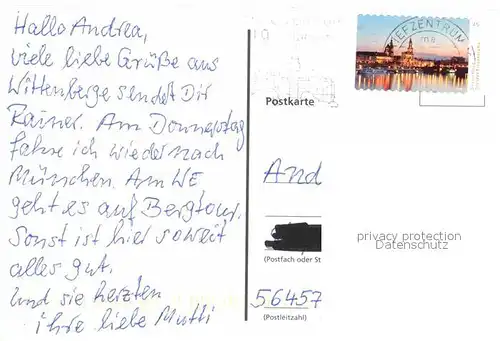 Hallo Andrea,
viele liebe Grüße aus
Wittenberge sendet Dir
Rainer. Am Donnerstag
fahre ich wieder nach
München. Am WE
geht es auf Bergtour.
Sonst ist hier soweit
alles gut.
Und sie herzten
ihre liebe Mutti
BRIEFZENTRUM
Postkarte
And
privacy protection
Datenschutz
(Postfach oder St
56457
(Postleitzahl)